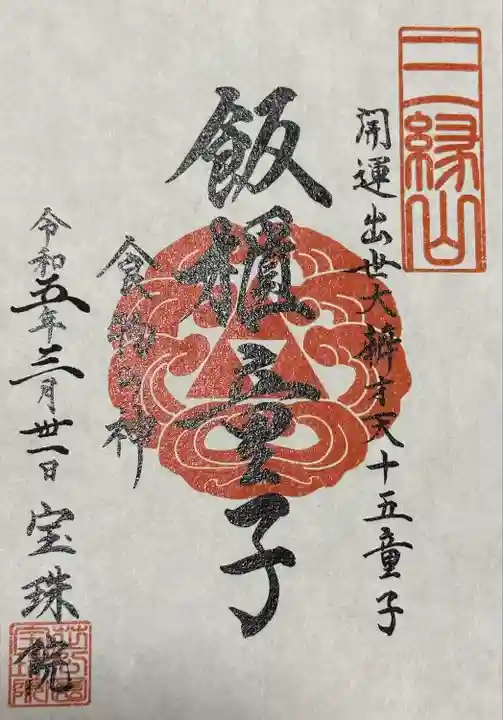 三縁山
開運出世大辨才天十五童子
飯櫃童子
食物之神
令和五年三月卅一日 宝珠院